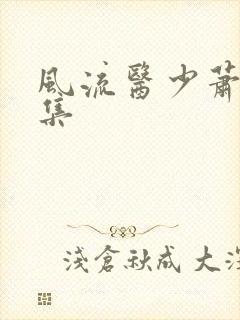 風流醫少蕭
集
淺倉秋成 大深